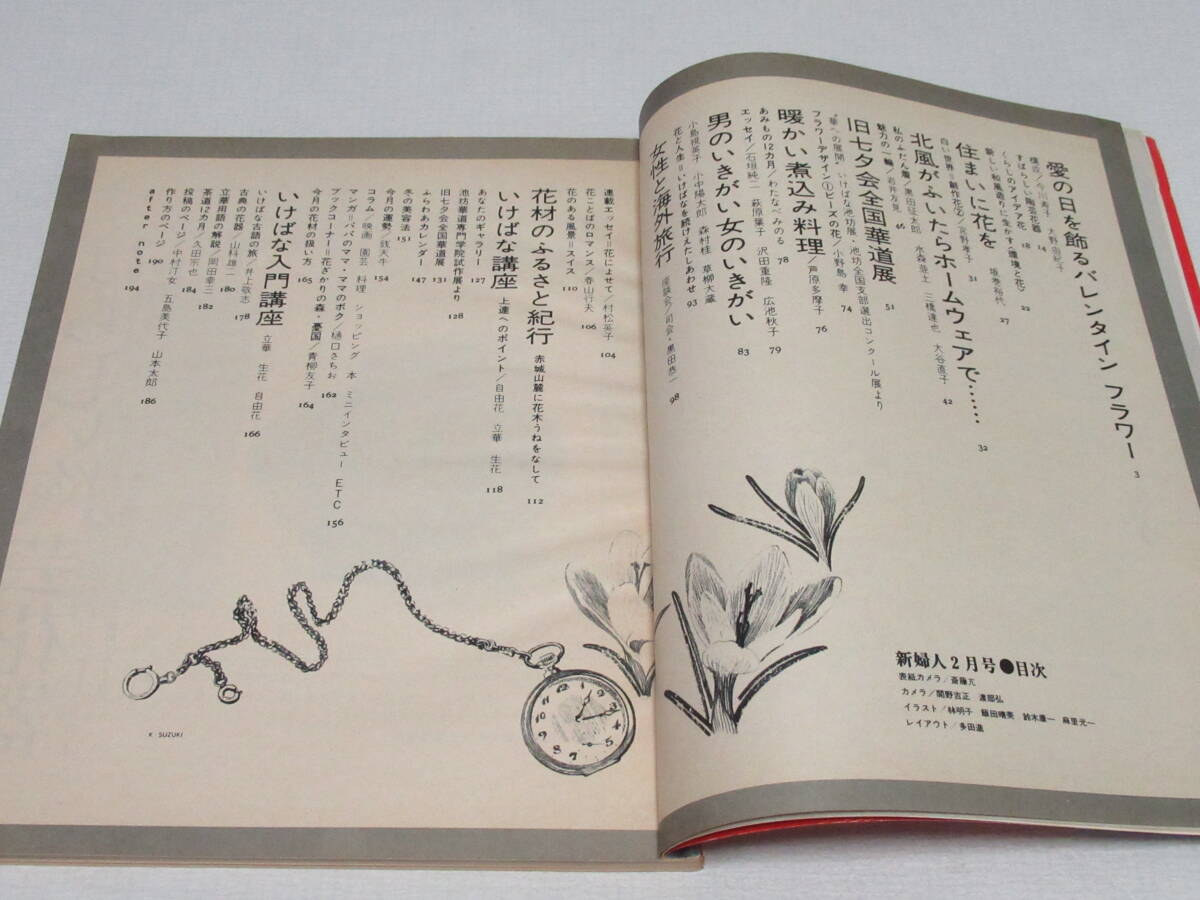 愛の日を飾るバレンタイン フラワー 3
構成/今川寿子 大野由紀子
すばらしい陶芸花器 14
くらしのアイデア花 18
新しい和風造りに生かす〈環境と花〉 22
住まいに花を 坂巻裕代 27
白い世界=創作花② 31
北風がふいたらホームウェアで…… 32
水森亜土 三橋達也 大谷直子 42
私のふだん着/黒田征太郎
魅力の一輪/岩井友見 46
旧七夕会全国華道展 51
"華への展開" いけばな池坊展・池坊全国支部選出コンクール展より
フラワーデザイン①ビーズの花/小野島 幸 74
暖かい煮込み料理/芦原多摩子 76
あみもの12カ月/わたなべみのる 78
エッセイ/石垣純二 萩原葉子 沢田重隆 広池秋子 79
男のいきがい女のいきがい 83
小島視英子 小中陽太郎 森村桂 草柳大蔵
花と人生=いけばなを続けえたしあわせ 93
女性と海外旅行 座談会/司会・黒田恭一 98
新婦人2月号●目次
表紙カメラ/斎藤亢
カメラ/関野吉正 渡部弘
イラスト/林明子 飯田晴美 鈴木康一 麻里光一
レイアウト/多田進
連載エッセイ=花によせて/村松英子 104
花ことばのロマンス/春山行夫 106
花のある風景=スイス 110
花材のふるさと紀行 赤城山麓に花木うねをなして 112
いけばな講座 上達へのポイント/自由花 立華 生花 118
あなたのギャラリー 127
池坊華道専門学院試作展より 128
旧七夕会全国華道展 131
ふらわあカレンダー 147
冬の美容法 151
今月の運勢/銭天牛 154
コラム/映画 園芸 料理 ショッピング 本 ミニインタビュー ETC 156
マンガ=パパのママ・ママのボク/樋口さちお 162
ブックコーナー=花ざかりの森・憂国/青柳友子 164
今月の花材の扱い方 165
いけばな入門講座 立華 生花 自由花 166
いけばな古語の旅/井上敬志 178
古典の花器/山科雄二 180
立華用語の解説/岡田幸三 182
茶道12カ月/久田宗也 184
投稿のページ/中村汀女 五島美代子 山本太郎 186
作り方のページ 190
after note 194
K SUZUKI